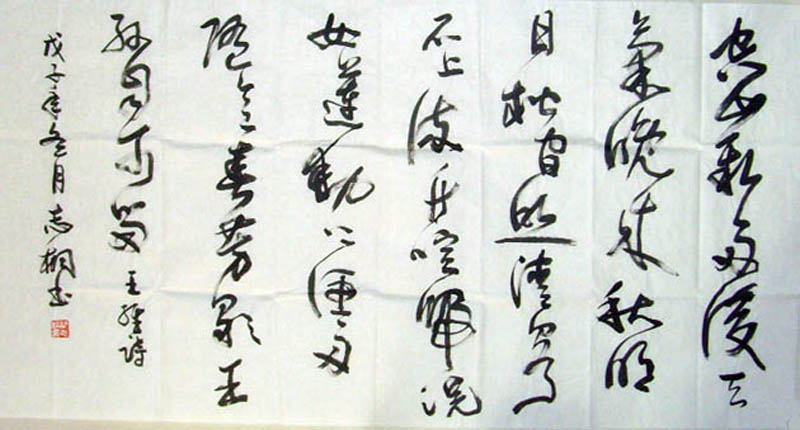 空山新雨後天
氣晚來秋明
月松間照清泉
石上流竹喧歸浣
女蓮動下漁舟
隨意春芳歇王
孫自可留 王維詩
戊子年冬月 志桐书